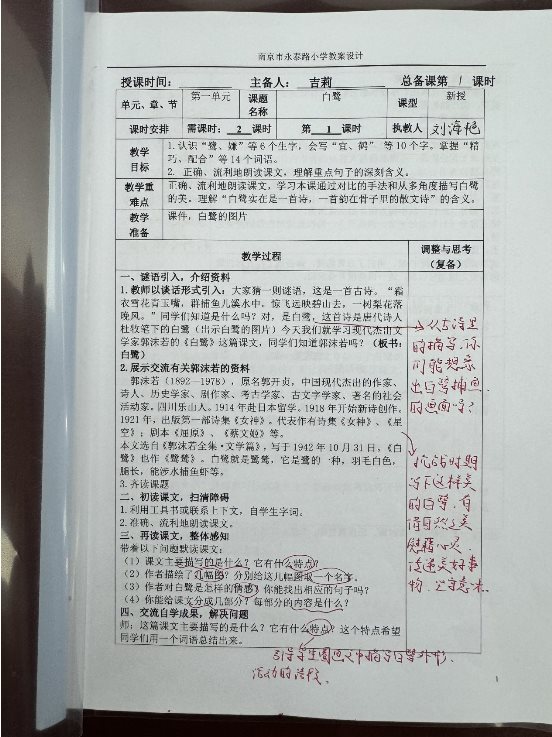 南京市永泰路小学教案设计
授课时间： 主备人： 吉莉 总备课第 1 课时
单元、章、节 第一单元 课题名称 白鹭 课型 新授
课时安排 需课时： 2 课时 第 1 课时 执教人 刘海艳
教学目标
1.认识“鹭、嫌”等6个生字，会写“宜、鹤” 等10个字。掌握“精
巧、配合”等14个词语。
2. 正确、流利地朗读课文，理解重点句子的深刻含义。
教学重难点
正确、流利地朗读课文，学习本课通过对比的手法和从多角度描写白鹭
的美，理解“白鹭实在是一首诗，一首韵在骨子里的散文诗”的含义。
教学准备
课件，白鹭的图片
教学过程
调整与思考
（复备）
一、谜语引入，介绍资料
1.教师以谈话形式引入：大家猜一则谜语，这是一首古诗。“霜
衣雪花青玉嘴，群捕鱼儿溪水中。惊飞远映碧山去，一树梨花落
晚风。”同学们知道是什么吗？对，是白鹭，这首诗是唐代诗人
杜牧笔下的白鹭（出示白鹭的图片）今天我们就学习现代杰出文
学家郭沫若的《白鹭》这篇课文，同学们知道郭沫若吗？（板书：
白鹭）
2.展示交流有关郭沫若的资料
郭沫若（1892—1978），原名郭开贞，中国现代杰出的作家、
诗人、历史学家、剧作家、考古学家、古文字学家、著名的社会
活动家。四川乐山人。1914年赴日本留学。1918年开始新诗创作。
1921年，出版第一部诗集《女神》。代表作有诗集《女神》、《星
空》；剧本《屈原》、《蔡文姬》等。
本文选自《郭沫若全集·文学篇》，写于1942年10月31日，《白
鹭》也作《鹭鸶》。白鹭就是鹭鸶，它是鹭的一种，羽毛白色，
腿长，能涉水捕鱼虾等。
3.齐读课题
二、初读课文，扫清障碍
1.利用工具书或联系上下文，自学生字词。
2.准确、流利地朗读课文。
三、再读课文，整体感知
带着以下问题默读课文：
（1）课文主要描写的是什么？它有什么特点？
（2）作者描绘了几幅图？分别给这几幅图取一个名字。
（3）作者对白鹭是怎样的情感？你能找出相应的句子吗？
（4）你能给课文分成几部分？每部分的内容是什么？
四、交流自学成果，解决问题
师：这篇课文主要描写的是什么？它有什么特点？这个特点希望
同学们用一个词语总结出来。
从古诗里
的描写，你
们能想象
出白鹭捕鱼
的画面吗？
抗战时期
写下这样美
的白鹭，有
借自然之美
慰藉心灵
传递美好事
物
引导学生圈画文中描写白鹭外形、
活动的语段。
1